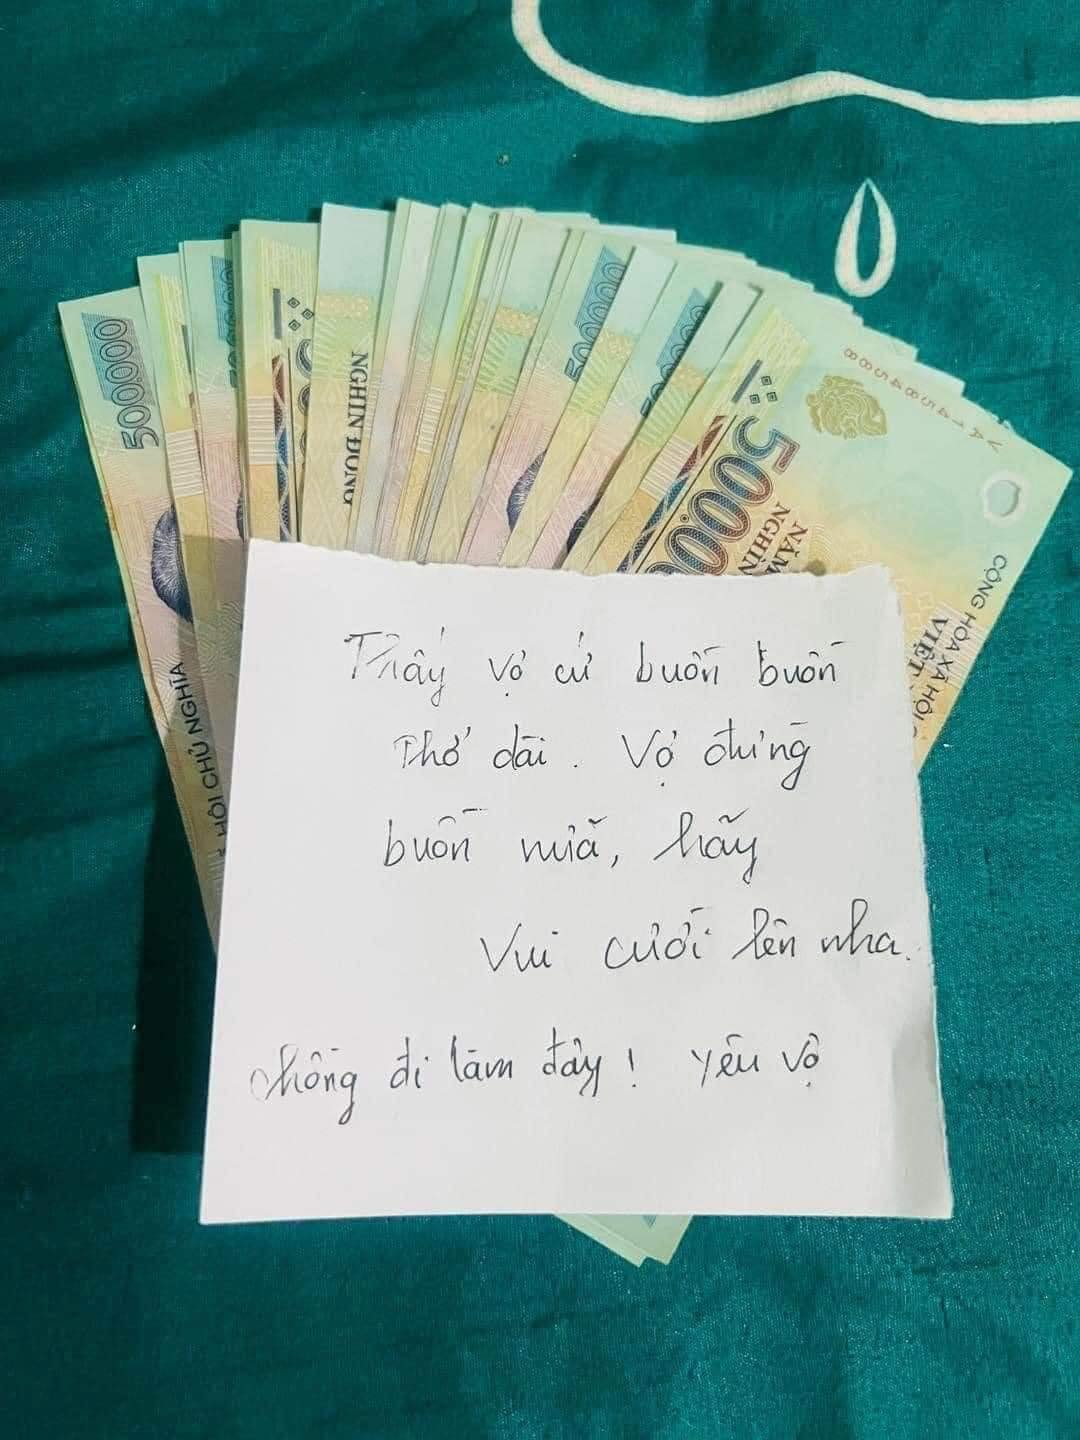 500000
NGHÌN ĐỒNG
500000
500.0
NĂM
NGHÌN
CỘNG HÒA XÃ HỘI
VIỆT
HỘI CHỦ NGHĨA
Thấy vợ cứ buồn buồn
Thở dài. Vợ đừng
buồn nữa, hãy
Vui cười lên nha.
chồng đi làm đây! Yêu vợ